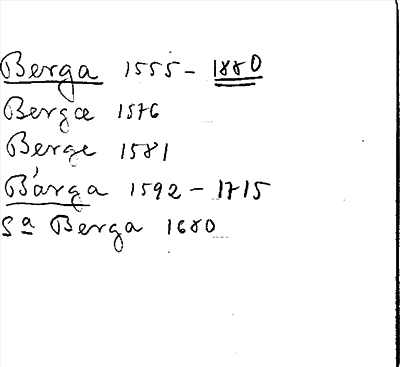 Berga 1555 - 1880
Bergæ 1576
Berge 1581
Bárga 1592 - 1715
Sª Berga 1680